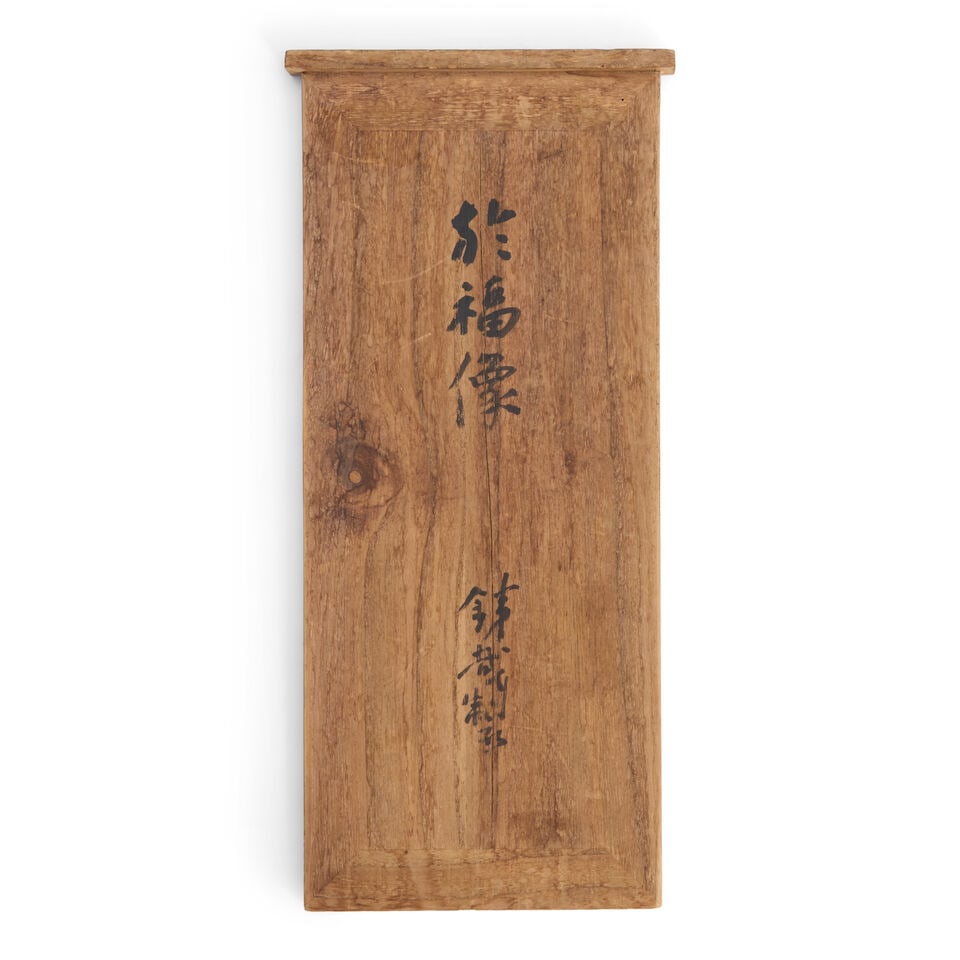 於福像
銕哉製